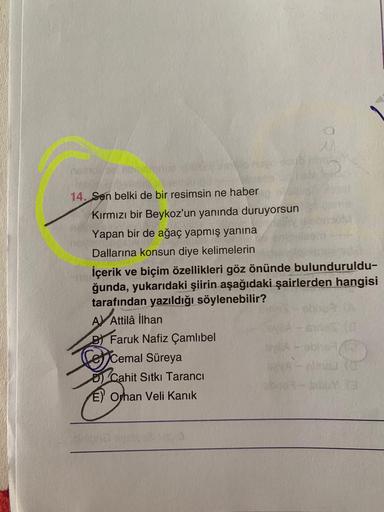 14. Sen belki de bir resimsin ne haber
Kırmızı bir Beykoz'un yanında duruyorsun
Yapan bir de ağaç yapmış yanına
Dallarına konsun diye kelimelerin
İçerik ve biçim özellikleri göz önünde bulunduruldu-
ğunda, yukarıdaki şiirin aşağıdaki şairlerden hangisi
tarafından yazıldığı söylenebilir?
A) Attilâ İlhan
B) Faruk Nafiz Çamlıbel
C) Cemal Süreya
D) Cahit Sıtkı Tarancı
E) Orhan Veli Kanık